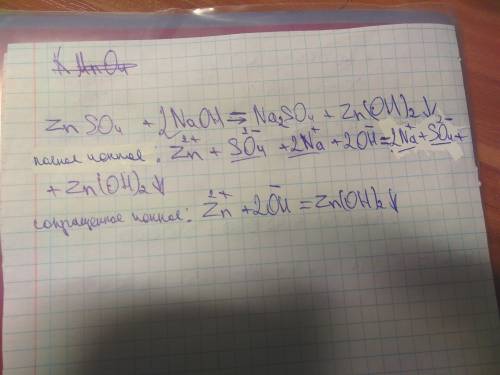 K MnO4
ZnSO4 + 2NaOH = Na2SO4 + Zn(OH)2↓
полное ионное: Zn²⁺ + SO4²⁻ + 2Na⁺ + 2OH⁻ = 2Na⁺ + SO4²⁻ +
+ Zn(OH)2↓
сокращенное ионное: Zn²⁺ + 2OH⁻ = Zn(OH)2↓